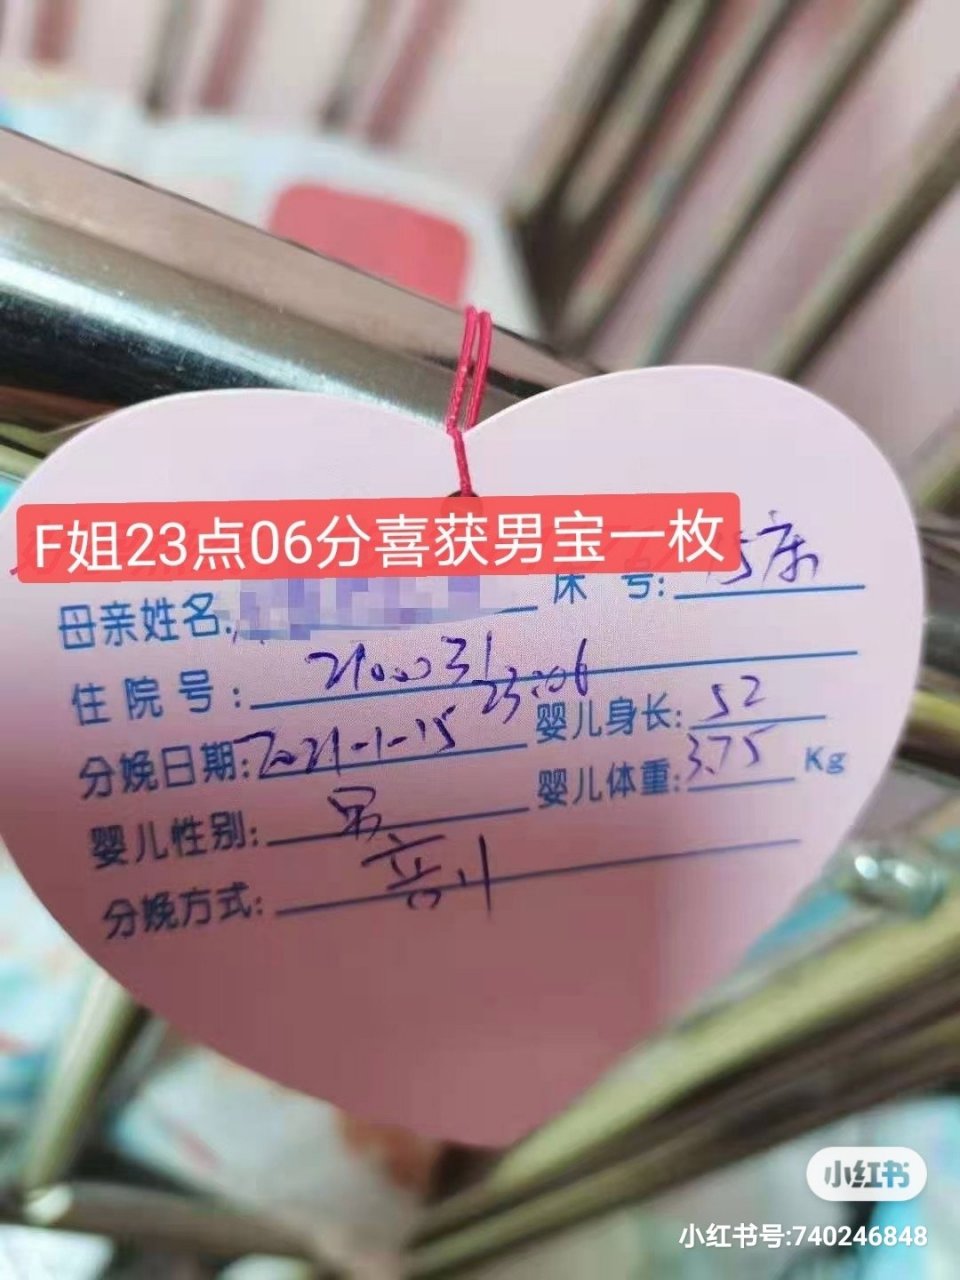 F姐23点06分喜获男宝一枚
母亲姓名: 床 号: 15床
住院号: 2100031
分娩日期: 2021-1-15 23:06 婴儿身长: 52
婴儿性别: 男 婴儿体重: 3.75 Kg
分娩方式: 剖
小红书
小红书号:740246848